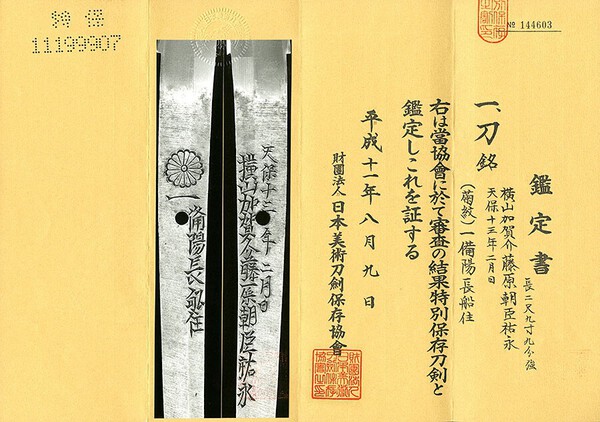 № 144603
鑑定書
一、刀 銘
横山加賀介藤原朝臣祐永
天保十三年二月日
(菊紋)一備陽長船住
長二尺九寸九分強
右は當協會に於て審査の結果特別保存刀剣と
鑑定しこれを証する
平成十一年八月九日
財團法人日本美術刀剣保存協會
天保十三年二月日
横山加賀介藤原朝臣祐永
一備陽長船住
特保
11199907